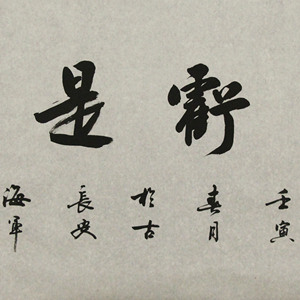 虧是
壬寅
春月
於古
長安
海軍